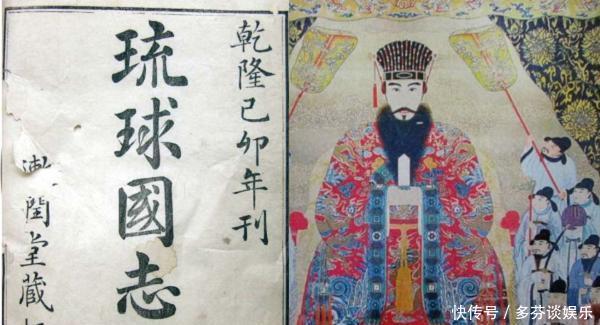 乾隆己卯年刊
琉球國志
閏堂藏
快传号 / 多芬谈娱乐